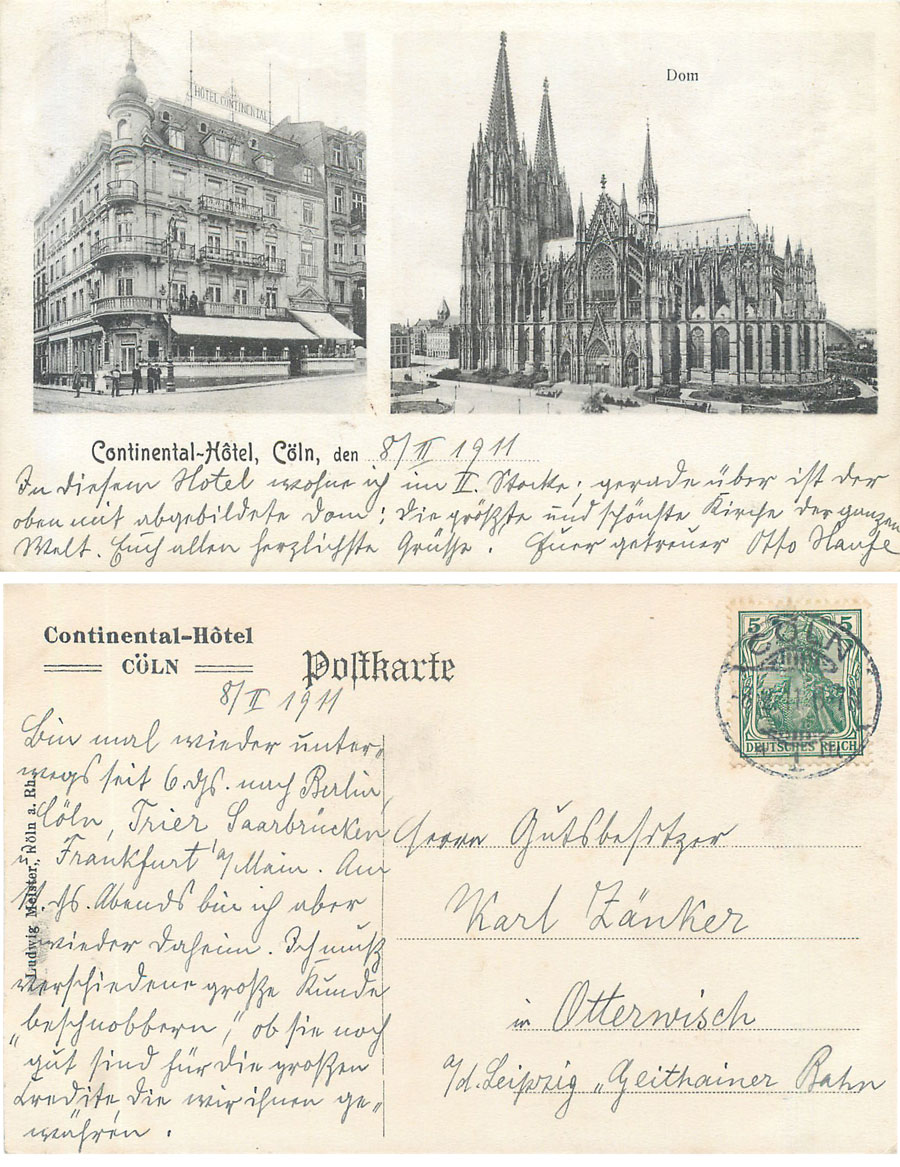 HÔTEL CONTINENTAL
Dom
Continental-Hôtel, Cöln, den 8/II 1911
In diesem Hotel wohne ich im II. Stocke; gerade über ist der
oben mit abgebildete Dom; die größte und schönste Kirche der ganzen
Welt. Euch allen herzlichste Grüsse. Euer getreuer Otto
Continental-Hôtel
CÖLN
Postkarte
8/II 1911
Bin mal wieder unter-
wegs seit 6. ds. nach Berlin,
Cöln, Trier Saarbrücken
u. Frankfurt a/Main. Am
ds. Abends bin ich aber
wieder daheim. Ich muß
verschiedene große Kunde
"beschnobbern", ob sie noch
gut sind für die großen
Credite, die wir ihnen ge-
währen.
Ludwig Meister, Köln a. Rh.
5 5
DEUTSCHES REICH
CÖLN
1
Herrn Gutsbesitzer
Karl Zänker
in Otterwisch
a/d. Leipzig "Geithainer Bahn